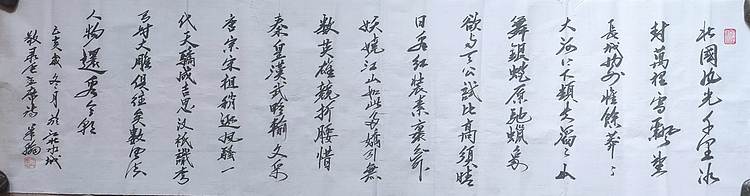 北國风光千里冰
封萬里雪飄望
長城内外惟餘莽々
大河上下頓失滔々山
舞銀蛇原馳蠟象
欲与天公試比高須晴
日看红装素裹分外
妖娆江山如此多嬌引無
數英雄競折腰惜
秦皇漢武略输文采
唐宗宋祖稍逊风骚一
代天驕成吉思汗祇識弯
弓射大雕俱往矣數风流
人物還看今朝
己亥年冬月於江北水城
敬录毛主席詩